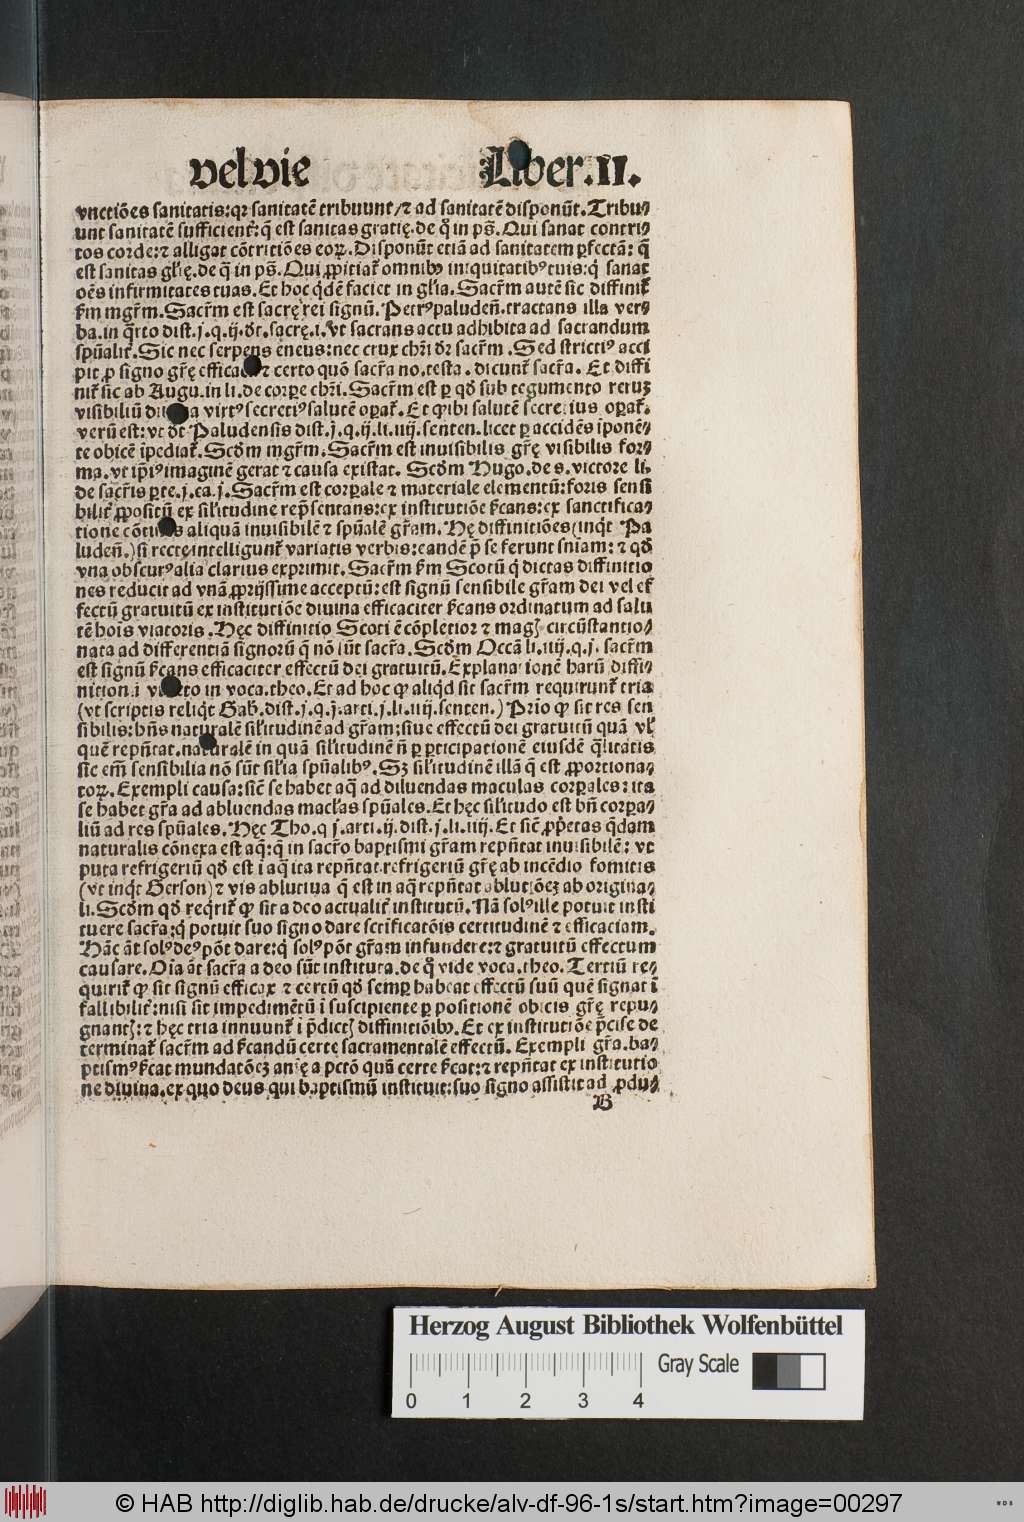 vel vie Liber.II.
vnctiões sanitatis:qꝛ sanitatē tribuunt/⁊ ad sanitatē disponūt.Tribu⸗
unt sanitatē sufficienť:q̄ est sanitas gratię.de q̊ in pš.Qui sanat contri⸗
tos corde:⁊ alligat cōtritiões eoꝝ.Disponūt etiā ad sanitatem ꝑfectā: q̄
est sanitas gľię.de q̄ in pš.Qui ꝓpitiať omnibꝰ iniquitatibꝰ tuis:q̇ sanat
oēs infirmitates tuas.Et hoc q̇dē faciet in gľia.Sacřm autē sic diffiniť
ẜm mgřm.Sacřm est sacrę rei signū.Petrꝰ paludeñ.tractans illa ver⸗
ba.in q̈rto dist.j.q.ij.ďt.sacrę.i.Vt sacrans actu adhibita ad sacrandum
spūaliť.Sic nec serpens eneus:nec crux chři ďr sacřm.Sed strictiꝰ acci
pit ꝓ signo gřę ⁊ certo quō sacřa no.testa.dicunť sacřa. Et diffi
niť sic ab Augu.in li.de corꝑe chři.Sacřm est ꝑ qď sub tegumento reruꝫ
visibiliū virtꝰ secretiꝰ salutē oꝑať.Et qꝛ ibi salutē oꝑať.
verū est:vt ďt Paludensis dist.j.q.ij.li.iiij.senten.licet ꝑ accidēs īponē⸗
te obicē īpediať.Scďm mgřm.Sacřm est inuisibilis gřę visibilis for⸗
ma.vt ip̄iꝰ imaginē gerat ⁊ causa existat. Scďm Hugo.de s.victore li.
de sacřis ꝑte.j.ca.j.Sacřm est corꝑale ⁊ materiale elementū:foris sensi
biliť ꝓpositū ex siľitudine rep̄sentans:ex institutiõe ẜcans:ex sanctifica⸗
tione aliquā inuisibilē ⁊ spūalē gřam.Hę diffinitiões(inq̇t Pa
ludeñ.)si recte intelligunť variatis verbis:eandē p̄ se ferunt sniam: ⁊ qď
vna obscurꝰ alia clarius exprimit.Sacřm ẜm Scotū q̇ dictas diffinitio
nes reducit ad vnā ꝓprijssime acceptū:est signū sensibile gřam dei vel ef⸗
fectū gratuitū ex institutiõe diuina efficaciter ẜcans ordinatum ad salu
tē hois viatoris.Hęc diffinitio Scoti ē cōpletior ⁊ magꝭ circūstantio⸗
nata ad differentiā signorū q̄ nō sūt sacřa.Scďm Occā li.iiij.q.j. sacřm
est signū ẜcans efficaciter effectū dei gratuitū.Explanationē harū diffi⸗
nition.i in voca.theo.Et ad hoc qꝙ aliq̇d sit sacřm requirunť tria
(vt scriptis reliq̇t Gab.dist.j.q.j.arti.j.li.iiij.senten.)Prīo qꝙ sit res sen
sibilis:hñs naturalē siľitudinē ad gřam:siue effectū dei gratuitū quā vľ
quē repñtat.naturalē in quā siľitudinē ñ ꝑ ꝑticipationē eiusdē q̈litatis
sic em̄ sensibilia nō sūt siľia spūalibꝰ.Sꝫ siľitudinē illā q̄ est ꝓportiona⸗
toꝝ.Exempli causa:sicē se habet aq̈ ad diluendas maculas corꝑales:ita
se habet gřa ad abluendas macľas spūales.Et hęc siľitudo est bñ corꝑa⸗
liū ad res spūales.Hęc Tho.q j.arti.ij.dist.j.li.iiij.Et sicē ꝓp̄etas q̈dam
naturalis cōnexa est aq̈:q̄ in sacřo baptismi gřam repñtat inuisibilē: vt
puta refrigeriū qď est ī aq̈ ita repñtat.refrigeriū gřę ab incēdio fomitis
(vt inq̇t Gerson)⁊ vis ablutiua q̄ est in aq̈ repñtat ablutiõeꝫ ab origina⸗
li.Scďm qď req̇riť qꝙ sit a deo actualiť institutū.Nā solꝰ ille potuit insti
tuere sacřa:q̇ potuit suo signo dare sctificatōis certitudinē ⁊ efficaciam.
Hāc āt solꝰ deꝰ pōt dare:q̇ solꝰ pōt gřam infundere:⁊ gratuitū effectum
causare.Oīa āt sacřa a deo sūt instituta.de q̊ vide voca.theo.Tertiū re⸗
quiriť qꝙ sit signū efficax ⁊ certū qď semꝑ habeat effectū suū quē signat ī
fallibiliť:nisi sit impedimētū ī suscipiente ꝑ positionē obicis gřę repu⸗
gnantꝭ:⁊ hęc tria innuunť ī p̄dictꝭ diffinitiõibꝰ.Et ex institutiõe p̄cise de
terminať sacřm ad ẜcandū certe sacramentalē effectū. Exempli gřa.ba⸗
ptismꝰ ẜcat mundatōeꝫ anię a pctō quā certe ẜcat:⁊ repñtat ex institutio
ne diuina.ex quo deus qui baptismū instituit:suo signo assistit ad ꝓdu⸗
B
Herzog August Bibliothek Wolfenbüttel
Gray Scale
0 1 2 3 4
© HAB http://diglib.hab.de/drucke/alv-df-96-1s/start.htm?image=00297